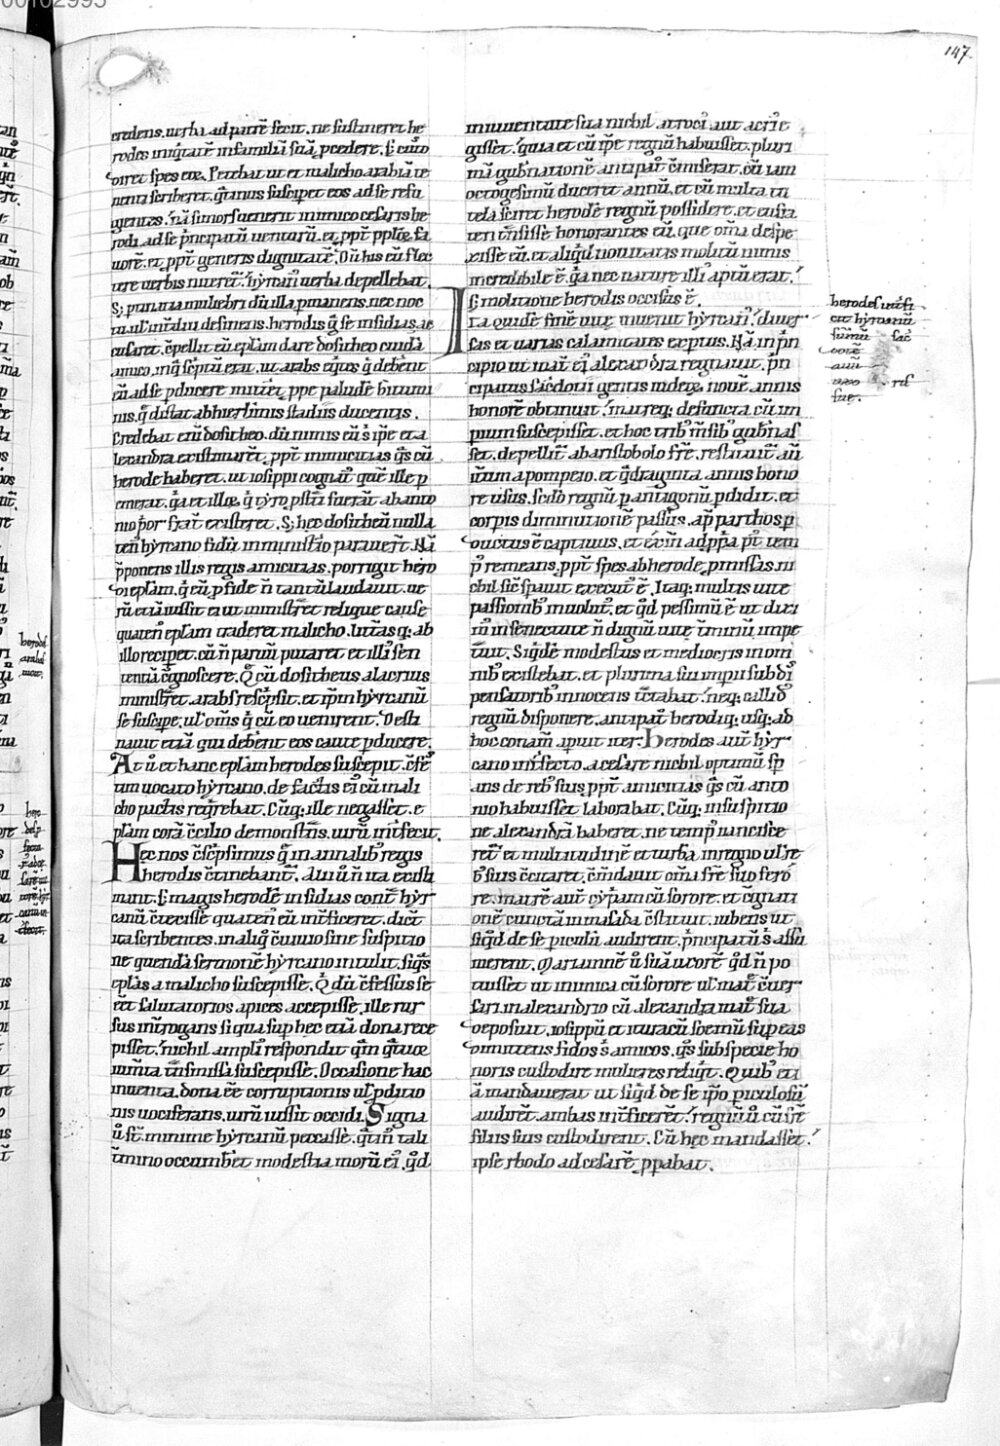 147
credens. uerba ad patrē fecit. ne sustineret he
rodes iniq̄tatē in familiā suā p̱cedere. S; cau̅
diret spes eoꝝ. Petebat ut et malicho arabiā te
nenti scriberet. q̄tinus suscipet eos ad se refu
gientes. Nā si mors uenerit inimico cesaris he
rodi. ad se p̄ncipatū uenturū. et ppt̄ ppl̄oꝝ fa
uorē. et ppt̄ generis dignitatē. Cū his eū flec
tere uerbis niteret̄. hẏrcan᷒ uerba depellebat.
S; prauitia muliebri dū illa p̱manens. nec noc
tu ul̄ int̄diu desinens. herodis q̄ se insidias. ac
cusaret. cōpellit eū ep̄lam dare dositheo cuidā
amico. in q̄ sc̄ptū erat. ut arabs eq̇tes q̇ deberent
eū ad se p̱ducere mittet̄. p̱pe paludē bitumi
nis. q̇ distat ab hierl̄imis stadiis ducentis.
Credebat enī dositheo. dū nimis eū s; ip̄e et a
lexandra existimaret̄. ppt̄ inimicitias q̇s cū
herode haberet. ut iosippi cognat᷒ quē ille p̱
emerat. q̇a et illoꝝ q̇ tẏro p̱sti fuerāt ab anto
nio ṗor frat̄ existeret. S; hec dositheū nulla
ten᷒ hẏrcano fidū in ministio parauer̄t. Nā
p̄ponens illis regis amicitias. porrigit hero
di ep̄lam. q̇ cū p̱ fide n̄ tantū laudauit. ue
rū etiā iussit ei ut ministret relique cause
quaten᷒ ep̄lam traderet malicho. litt̄as q; ab
illo recip̱et. cū n̄ parui putaret et illi᷒ sen
tentiā c̄gnoscere. Q̇ cū dositheus alacrius
ministret̄. arabs resc̄psit. et ip̄m hẏrcanū
se suscip̱e. ul̄ om̄s q̇ cū eo uenirent. Desti
nauit etiā qui deb̄ent eos caute p̱ducere.
At ū et hanc ep̄lam herodes suscepit. c̄fes
tim uocato hẏrcano. de factis ei᷒ cū mali
cho pactis req̇rebat. Cūq; ille negasset. e
p̄lam corā c̄cilio demonstrās. uirū int̄fecit.
Hec nos c̄sc̄psimus q̄ in annalib᷒ regis
herodis c̄tinebant̄. Aui ū n̄ ita existi
mant. S; magis herodē insidias cont̄ hẏr
canū c̄texisse quaten᷒ eū int̄ficeret. dic̄t
ita scribentes. in aliq̇ c̄uiuio sine suspitio
ne quendā sermonē hẏrcano intulit. si q̇s
ep̄las a malicho suscepisse. Q̇ dū c̄fessus se
eēt salutatorios apices accepisse. ille rur
sus int̄rogans si qua sup̱ hec etiā dona rece
pisset. nichil ampli᷒ respondit q̄m q̄tuor
ium̄ta trāsmissa suscepisse. Occasione hac
inuenta. dona eē corruptionis ul̄ p̱ditio
nis uociferans. uirū iussit occidi. Signa
ū sī minime hẏrcanū peccasse. q̄tin᷒ tali
t̄mino occumbet modestia morū ei᷒. q̇d
in iuuentute sua nichil. atroci᷒ aut acri᷒ e
gisset. q̇uia et cū ip̄e regnū habuisset. pluri
mā gubnationē antipat̄ c̄miserat. cū iam
octogesimū duceret annū. et cū multa in
tela sciret herodē regnū possidere. et eufra
ten trāsisse honorantes eū. que om̄a despe
xisse eū. et aliq̇d nouitatis molitū nimis
incredibile ē. q̇a nec nature illi᷒ aptū erat.
s; molitione herodis occisus ē.
Ita quidē finē uite inuenit hẏrcan᷒. diuer
sas et uarias calamitates exp̱tus. Nā in p̄n
cipio ut mat̄ ei᷒ alexandra regnauit. p̄n
cipatus sac̄dotii gentis iudeoꝝ nouē annis
honorē obtinuit. matreq; defuncta cū im
pium suscepisset. et hoc trib᷒ m̄sib᷒ gub̄nas
set. depellit̄ ab aristobolo fr̄e. restituit̄ aū
itūm a pompeio. et q̇draginta annis hono
re usus. sedō regnū p̱ antigonū p̱didit. et
corpis diminutionē passus. ap̄ parthos p̱
ductus ē captiuus. et exin̄ ad pp̄a p᷒ tem
p᷒ remeans. ppt̄ spes ab herode p̱missas ni
chil sic̄ spauit executū ē. Itaq; multis uite
passionib᷒ inuolut᷒. et q̇d pessimū ē ut dixi
m᷒ in senectute n̄ dignū uite t̄minū impe
trauit. Siq̇dē modestus et mediocris in om
nib᷒ existebat. et plurima sui impii sub di᷒
pensatorib᷒ innocens t̄ctabat. neq; callid᷒
regnū disponere. antipat̄ herodiq; usq; ad
hoc conam̄ apuit iter. Herodes aut̄ hẏr
cano int̄fecto. a cesare nichil optimū sp̱
ans de reb᷒ suis ppt̄ amicitias q̇s cū anto
nio habuisset laborabat. Cūq; in suspitio
ne alexandrā haberet. ne temp᷒ nancisce
ret̄ et multitudinē et turba in regno ul̄ re
b᷒ suis c̄citaret. c̄mdauit om̄a fr̄e suo fero
re. matrē aut̄ cẏp̱am cū sorore. et c̄gnati
onē cunctā in masada c̄stituit. iubens ut
siq̇d de se piculū audirent. p̄ncipatū s; assu
merent. Mariamnē ū suā uxorē q̇d n̄ po
tuisset ut inimica cū sorore ul̄ mat̄ c̄uer
sari. in alexandrio cū alexandra mat̄ sua
deposuit. iosippū et ituracū soemū sup̱ eas
dimittens fidos s; amicos. q̇s sub specie ho
noris custodire mulieres reliq̇t. Quib᷒ eti
ā mandauerat ut siq̇d de se ip̄o p̱iculosū
audiret. ambas int̄ficeret. regnū ū cū fr̄e
filiis suis custodirent. Cū hec mandasset.
ipse rhodo ad cesarē p̱pabat.
herodes int̄fi
cit hẏrcanū
sūmū sac̄